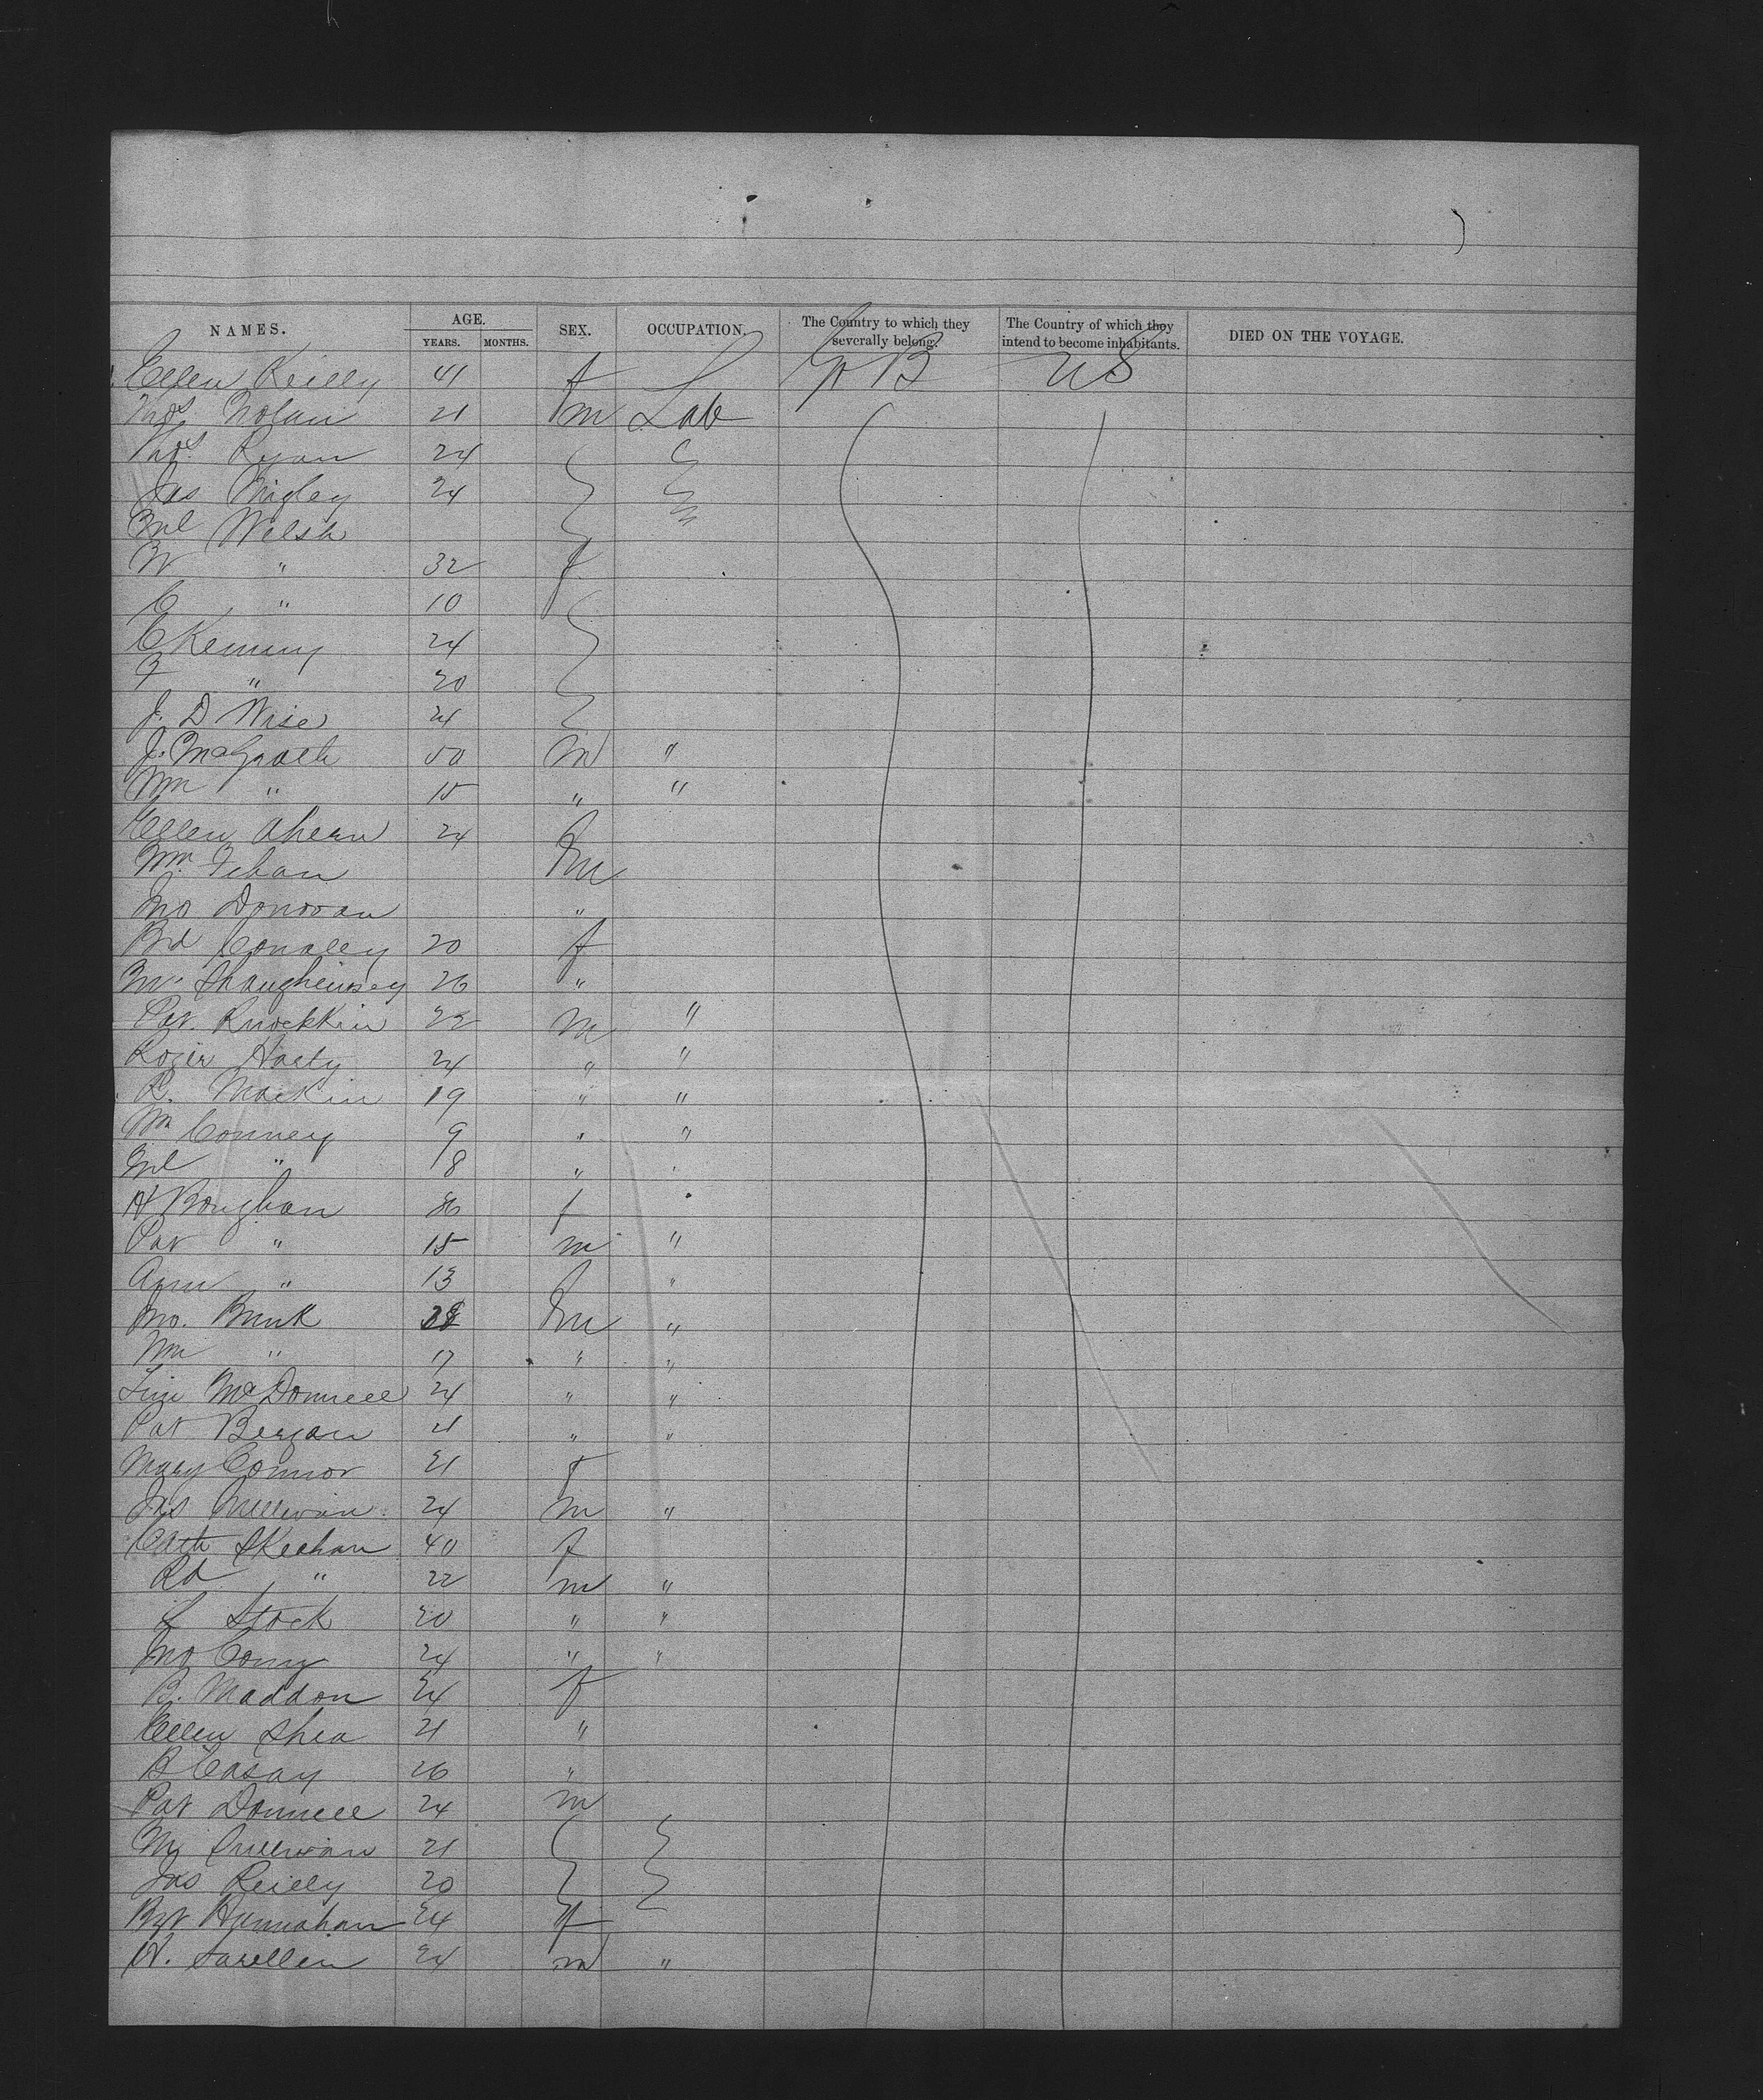 NAMES. AGE. SEX. OCCUPATION. The Country to which they severally belong. The Country of which they intend to become inhabitants. DIED ON THE VOYAGE.
YEARS. MONTHS.
Ellen Reilly 41 f G B U S
Thos Nolan 21 m Lab
Thos Ryan 24
Jas 24
Ml Welsh
W " 32 f
C " 10
C Kenny 24
" 20
J. D Wise 24
J. McGrath 50 m "
Wm " 15 " "
Ellen Ahearn 24 f
Wm. Tehan m
Jno Donovan "
Bd Conolly 20 f
M. Shaughensey 26 "
Pat. Knockkin 22 m "
Roger Harty 24 " "
R. Mackin 19 " "
Wm Conney 9 " "
Ml " 18 "
H Boughan f
Pat " 15 m "
Ann " 13 f "
Jno. Brunk 38 m "
Wm " 17 " "
Tim McDonnell 24 " "
Pat Bergan 21 " "
Mary Connor 21 f
Jas Sullivan 24 m "
Cath Skeahan 40 f
Rd " 22 m "
L Stock 20 " "
Jno Cony 24 " "
B. Maddon 24 f
Ellen Shea 21 "
B Casay 26 "
Pat Donnell 24 m
M. Sullivan 21
Jas Reilly 20
Bgt Hannahan 24 f
H. 24 m "